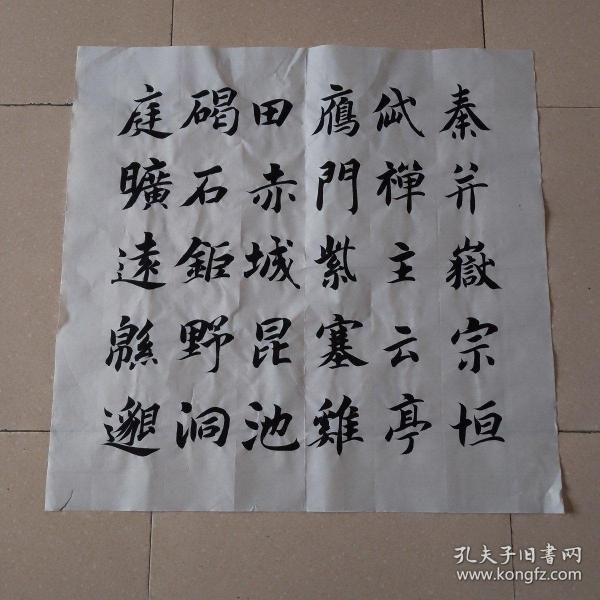 秦并嶽宗恒
岱禪主云亭
鴈門紫塞雞
田赤城昆池
碣石鉅野洞
庭曠遠緜邈
孔夫子旧书网
www.kongfz.com